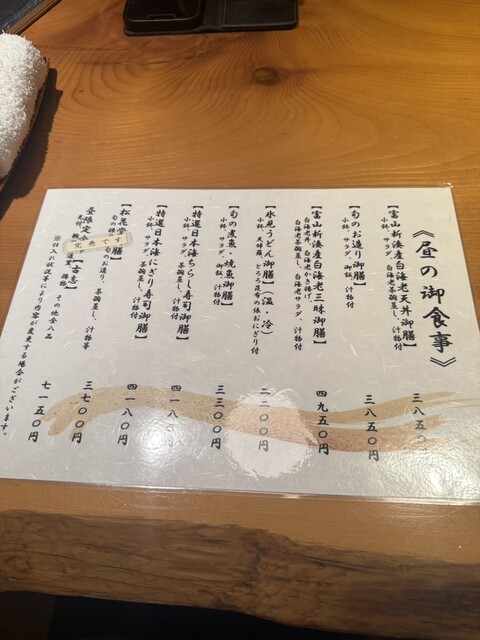 《昼の御食事》
【富山新湊産白海老天丼御膳】
小鉢、サラダ、白海老茶碗蒸し、汁物付
三八五〇円
【旬のお造り御膳】
小鉢、サラダ、御飯、汁物付
三八五〇円
【富山新湊産白海老三昧御膳】
白海老丼、白海老かき揚げ、
白海老茶碗蒸し、白海老サラダ、汁物付
四九五〇円
【氷見うどん御膳】（温・冷）
小鉢、天婦羅、とろろ昆布の俵おにぎり付
〇〇円
【旬の煮魚・焼魚御膳】
小鉢、サラダ、御飯、汁物付
三三〇〇円
【特選日本海ちらし寿司御膳】
小鉢、サラダ、茶碗蒸し、汁物付
四一八〇円
【特選日本海にぎり寿司御膳】
小鉢、サラダ、茶碗蒸し、汁物付
四一八〇円
【松花堂 膳】
旬の 旬のお造り、茶碗蒸し、汁物等
三七〇〇円
完売です
昼限定会 【古志】
先付 椀 造 焼物、その他全八品
七一五〇円
※仕入れ状況等により内容が変更する場合がございます。